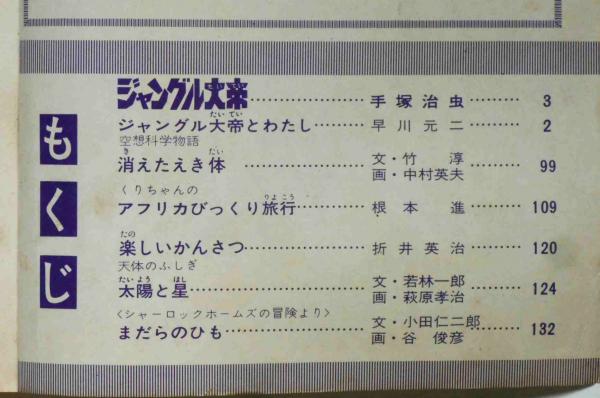 もくじ
ジャングル大帝………………手塚治虫………3
ジャングル大帝とわたし………早川元二………2
空想科学物語
消えたえき体………………文・竹 淳
画・中村英夫………99
くりちゃんの
アフリカびっくり旅行…………根本 進………109
楽しいかんさつ………………折井英治………120
天体のふしぎ
太陽と星………………文・若林一郎
画・萩原孝治………124
〈シャーロックホームズの冒険より〉
まだらのひも………………文・小田仁二郎
画・谷 俊彦………132